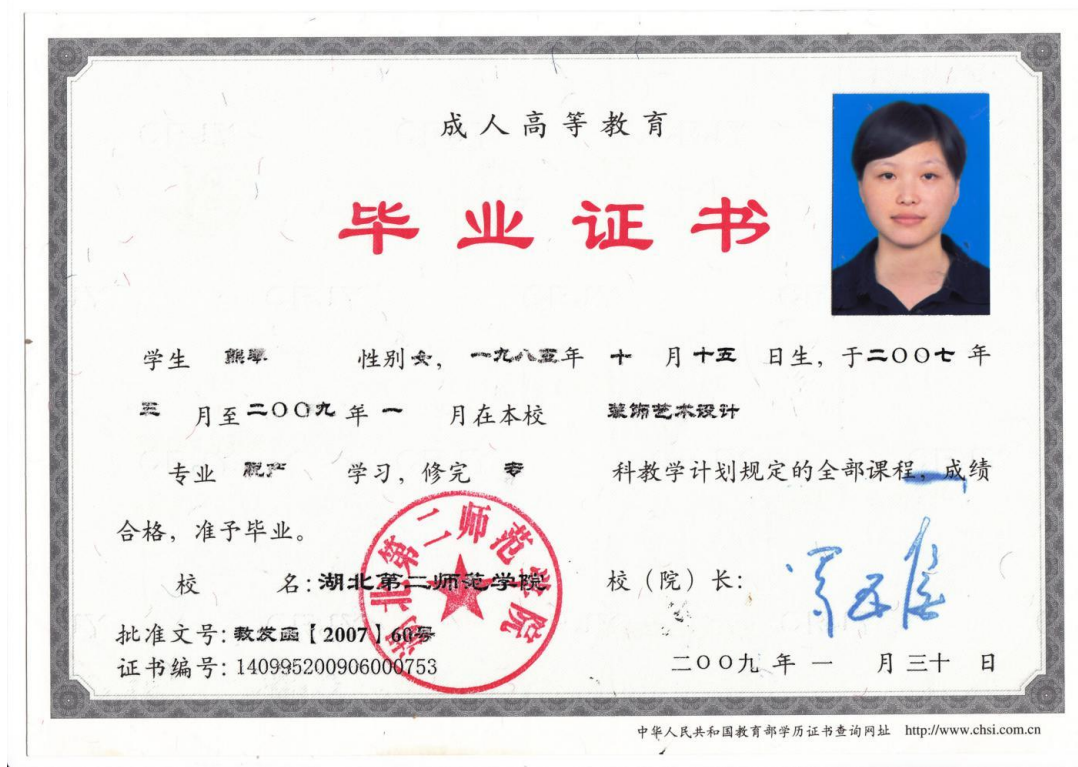 成人高等教育
毕业证书
学生 熊翠 性别女，一九八五年 十 月十五 日生，于二〇〇七 年
三 月至二〇〇九年 一 月在本校 装饰艺术设计
专业 脱产 学习，修完 专 科教学计划规定的全部课程，成绩
合格，准予毕业。
湖北第二师范学院
校 名：湖北第二师范学院 校（院）长：
批准文号：教发函【2007】60号
证书编号：140995200906000753 二〇〇九 年 一 月 三十 日
中华人民共和国教育部学历证书查询网址 http://www.chsi.com.cn